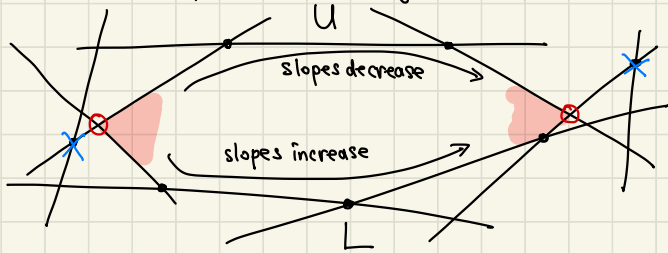 U
slopes decrease
slopes increase
L